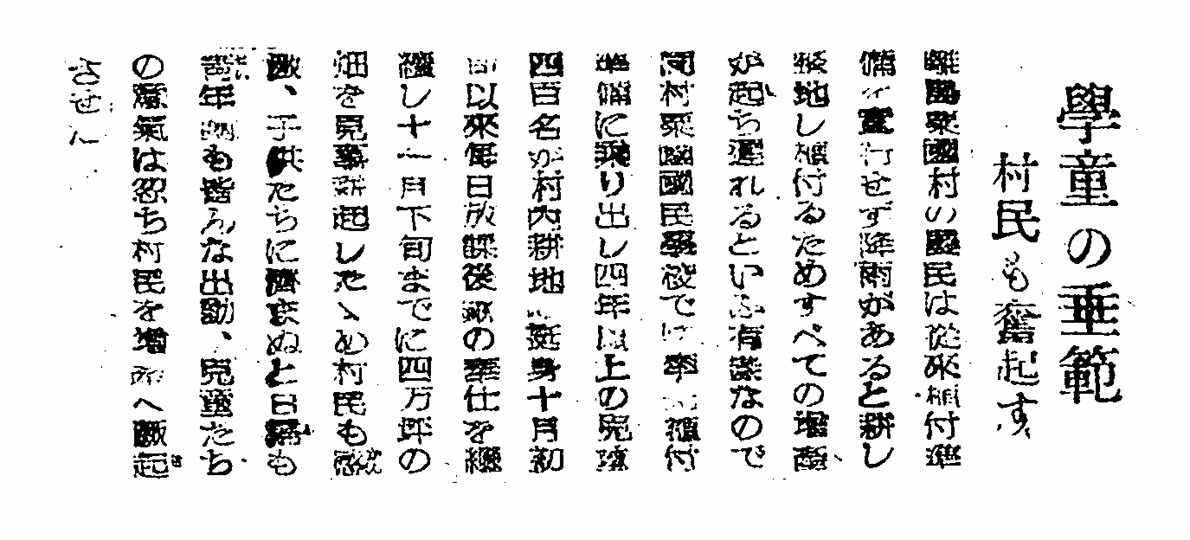 學童の垂範
村民も奮起す
離島粟國村の農民は從來植付準
備を實行せず降雨があると耕し
整地し植付るためすべての増産
が起ち遲れるといふ有樣なので
同村粟國國民學校では率先植付
準備に乘り出し四年以上の兒童
四百名が村内耕地に挺身十月初
旬以來毎日放課後鍬の奉仕を繼
續し十一月下旬までに四万坪の
畑を見事耕起したゝめ村民も感
激、子供たちに濟まぬと日曜も
靑年團も皆んな出動、兒童たち
の意氣は忽ち村民を増産へ蹶起
させた